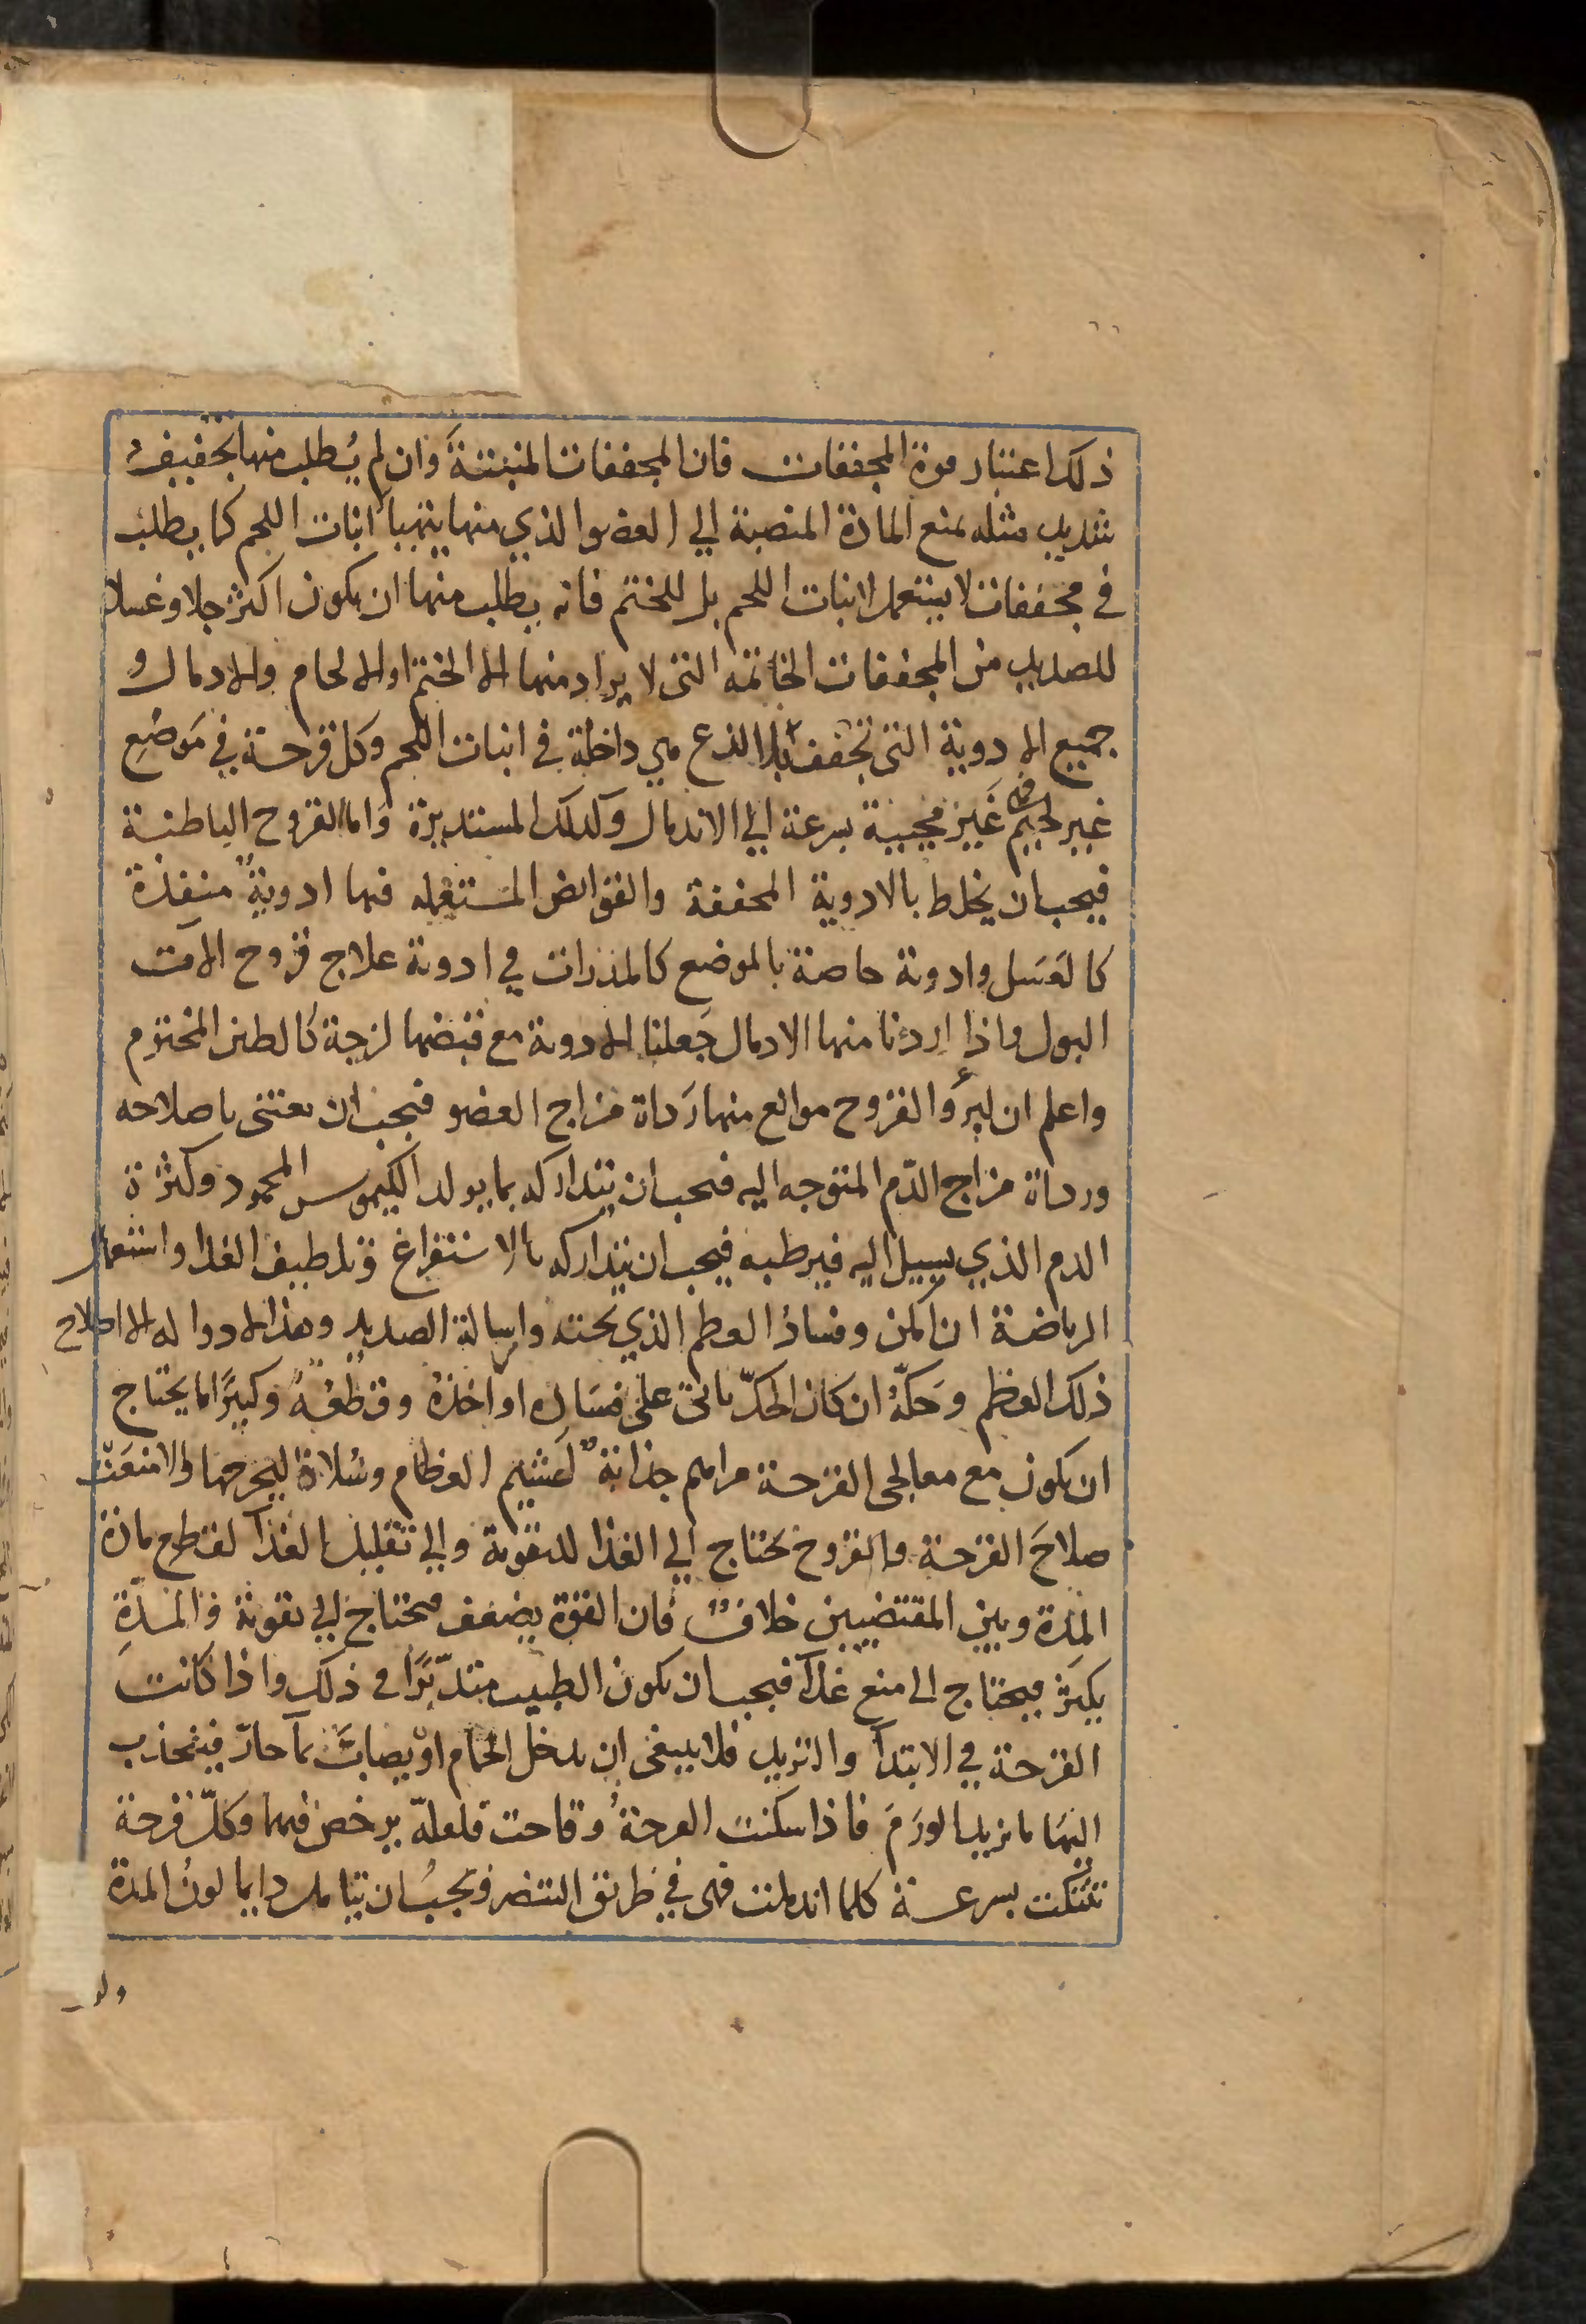 ذلك اعتبار قوة المجففات فان المجففات المنبتة وان لم يُطلب منها تجفيف
شديد مثله لمنع المادة المنصبة الي العضو الذي منها يتهيا انبات اللحم كما يطلب
في مجففات لا يستعمل لانبات اللحم بل للختم فانه يطلب منها ان يكون اكثر جلا وغسلا
للصديد من المجففات الخاتمه التي لا يراد منها الا الختم او الالحام والادمال و
جميع الادوية التي تجفف بلا لذع هي داخلة في انبات اللحم وكل قرحة في موضع
غير لحيم فهي غير مجيبة بسرعة الي الاندمال وكذلك المستديرة واما القروح الباطنة
فيجب ان يخلط بالادوية المجففة والقوابض المستعمله فيها ادوية منفذة
كالعسل وادوية خاصة بالموضع كالمدرات في ادوية علاج قروح الات
البول واذا اردنا منها الادمال جعلنا الادوية مع قبضها لزجة كالطين المختوم
واعلم ان لبرؤ القروح موانع منها رداة مزاج العضو فيجب ان يعتني باصلاحه
ورداة مزاج الدّم المتوجه اليه فيجب ان تتداركه بما يولد الكيموس المحمود وكثرة
الدم الذي يسيل اليه فيرطبه فيجب ان تتداركه بالاستفراغ وتلطيف الغذا واستعمال
الرياضة ان امكن وفساد العظم الذي تحته واسالة الصديد وهذا لا دوا له الا اصلاح
ذلك العظم وحكّه ان كان الحكّ ياتي على فساده او اخذه وقطعه وكثيرًا ما يحتاج
ان يكون مع معالجي القرحة مراهم جذابة لهشيم العظام وسُلاة ليخرجها والا منعت
صلاح القرحة والقروح تحتاج الي الغذا للتقوية والي تقليل الغذا لقطع مادة
المدة وبين المقتضيين خلاف فان القوة يضعف فتحتاج الي تقوية والمدّة
يكثر فيحتاج الى منع غذآ فيجب ان يكون الطبيب متدبّرًا في ذلك واذا كانت
القرحة في الابتدآ والتزيد فلا ينبغي ان يدخل الحمام او يصاب بمآ حارّ فينجذب
اليها ما يزيد الورم فاذا سكنت القرحة وقاحت فلعله يرخص فيها وكلّ قرحة
تنتكت بسرعة كلما اندملت فهي في طريق التنصر ويجب ان تتامل دايما لون المدة
ولون